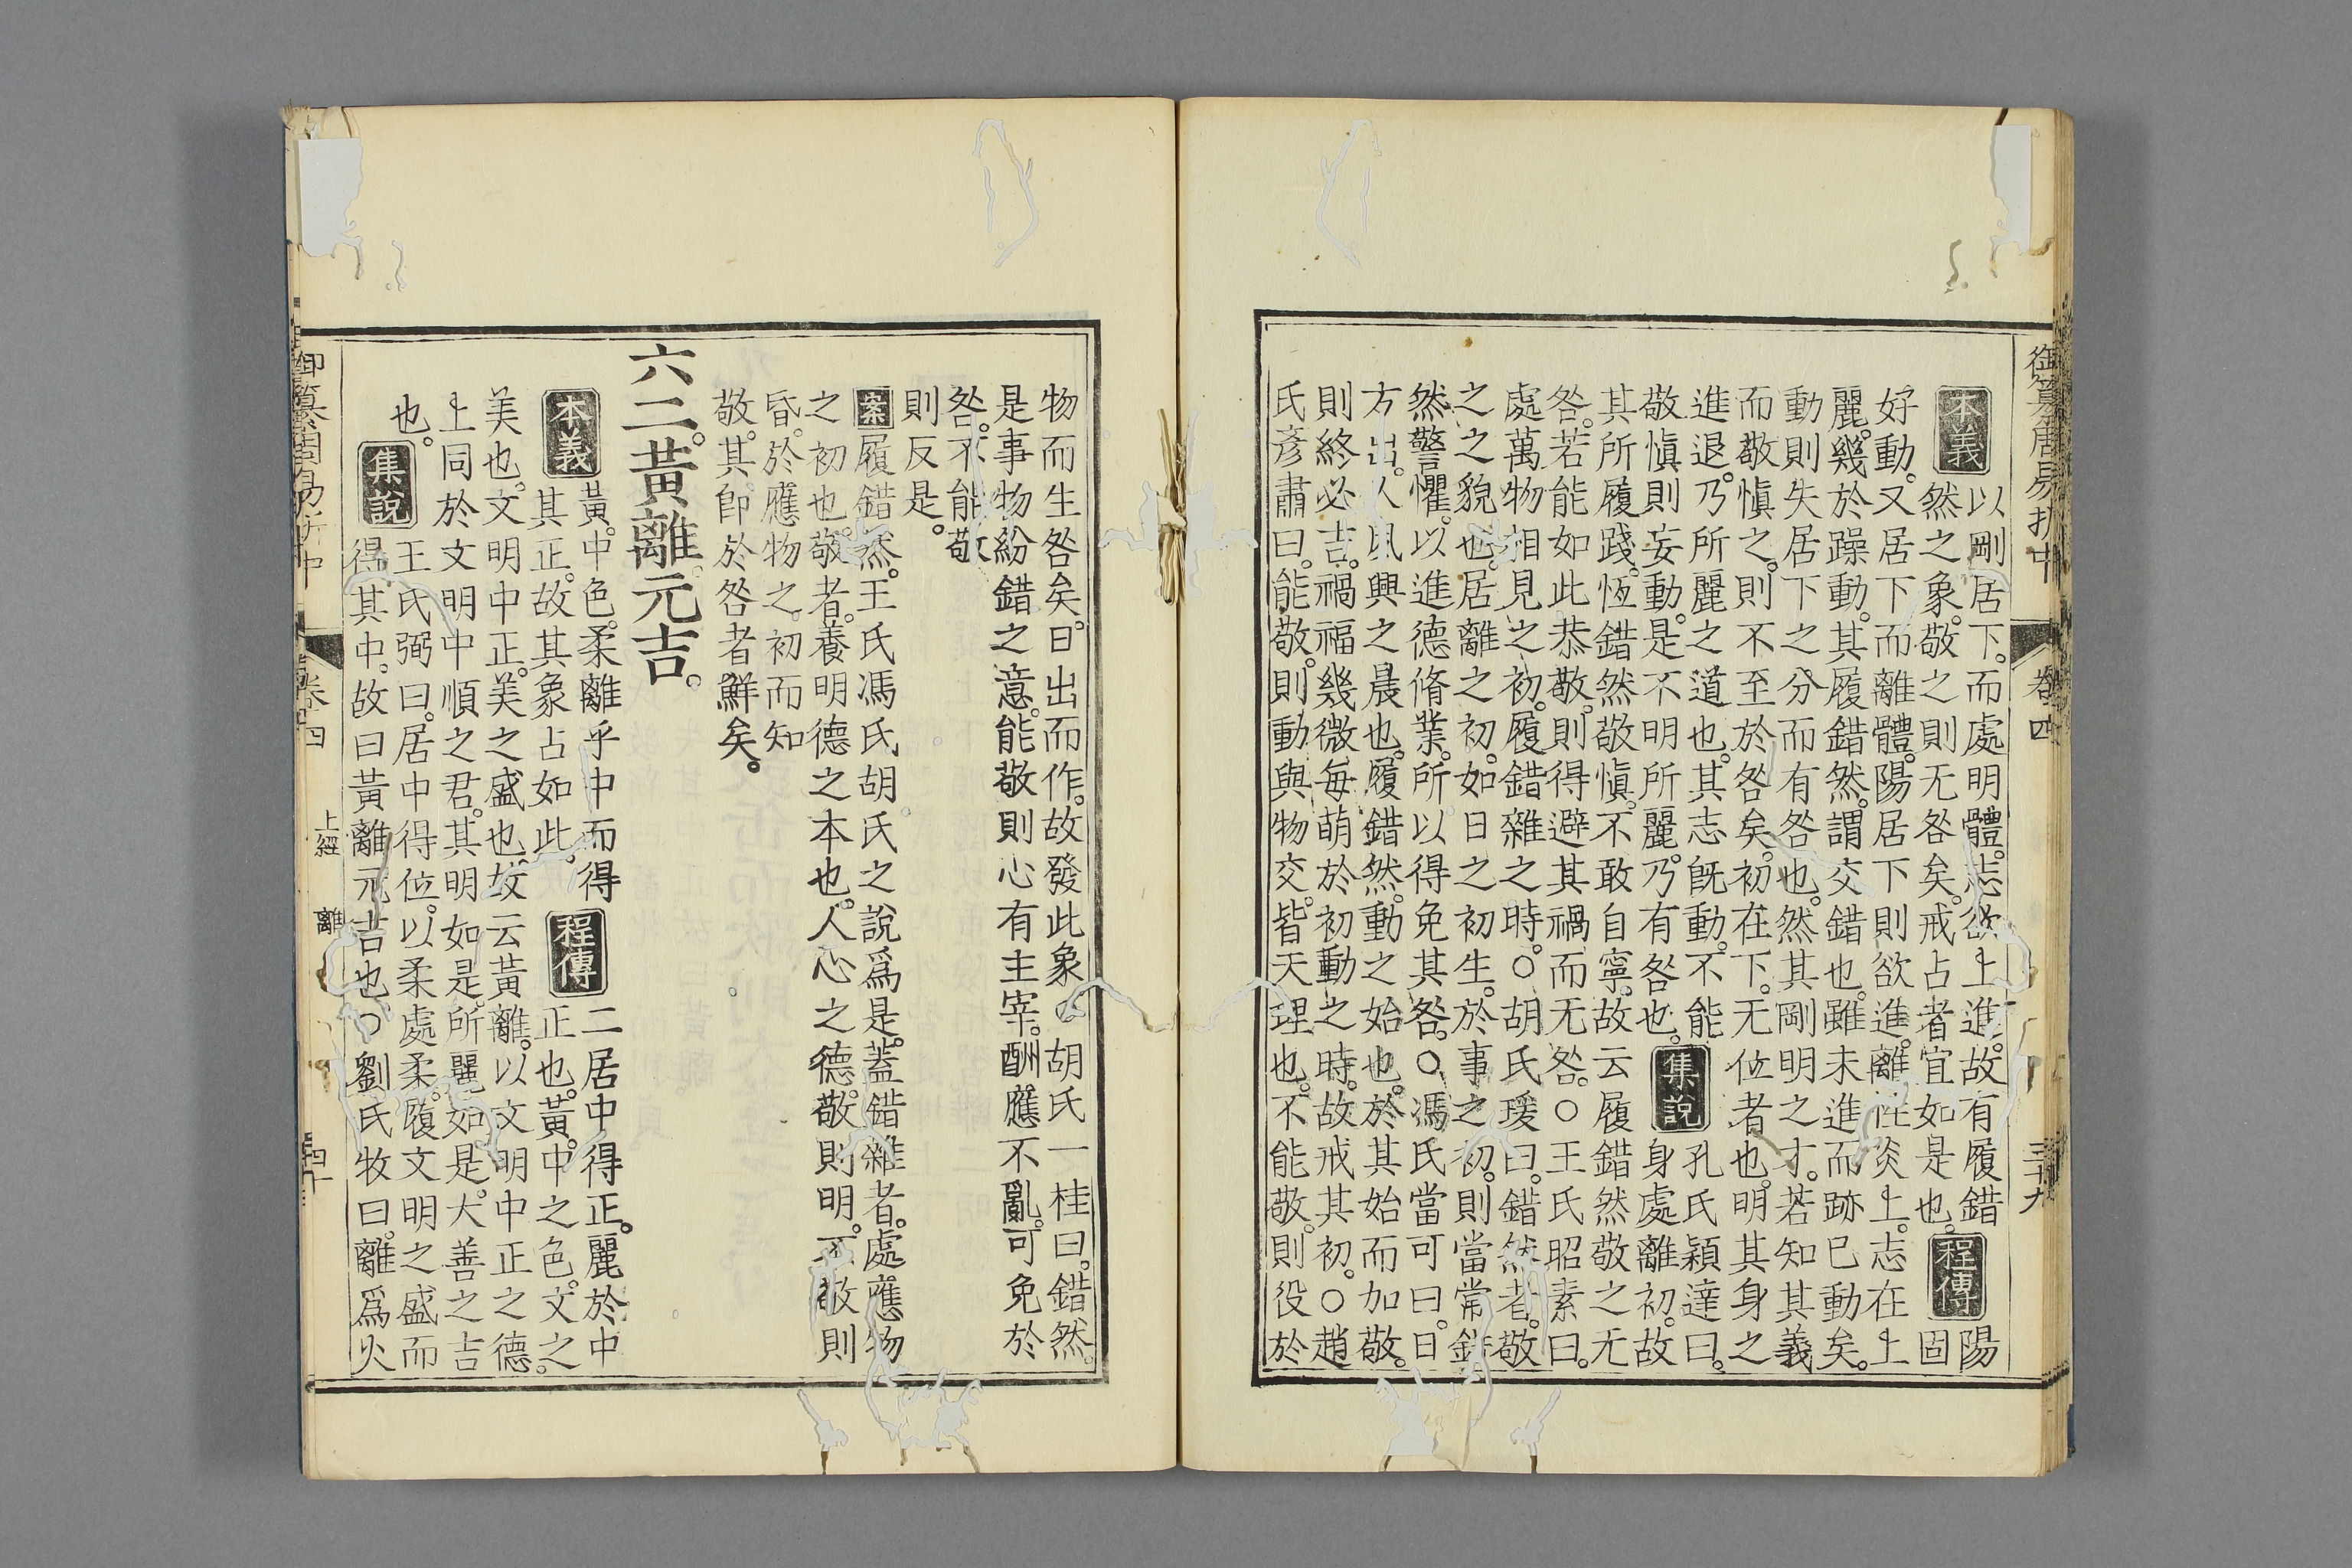 御纂周易折中　卷四　三十九
本義 以剛居下。而處明體。志欲上進。故有履錯 程傳 陽
然之象。敬之則无咎矣。戒占者宜如是也。 固
好動。又居下而離體。陽居下則欲進。離性炎上。志在上
麗。幾於躁動。其履錯然。謂交錯也。雖未進而跡已動矣。
動則失居下之分而有咎也。然其剛明之才。若知其義
而敬慎之。則不至於咎矣。初在下。无位者也。明其身之
進退。乃所麗之道也。其志既動。不能 集說 孔氏穎達曰。
敬慎則妄動。是不明所麗。乃有咎也。 身處離初。故
其所履踐。恆錯然敬慎。不敢自寧。故云履錯然敬之无
咎。若能如此恭敬。則得避其禍而无咎。○王氏昭素曰。
處萬物相見之初。履錯雜之時。○胡氏瑗曰。錯然者。敬
之之貌也。居離之初。如日之初生。於事之初。則當常錯
然警懼。以進德脩業。所以得免其咎。○馮氏當可曰。日
方出。人夙興之晨也。履錯然。動之始也。於其始而加敬。
則終必吉。禍福幾微。每萌於初動之時。故戒其初。○趙
氏彥肅曰。能敬。則動與物交。皆天理也。不能敬。則役於
物而生咎矣。日出而作。故發此象。○胡氏一桂曰。錯然。
是事物紛錯之意。能敬則心有主宰。酬應不亂。可免於
咎。不能敬
則反是。
案 履錯然。王氏馮氏胡氏之說爲是。蓋錯雜者。處應物
之初也。敬者。養明德之本也。人心之德。敬則明。不敬則
昏。於應物之初而知
敬。其卽於咎者鮮矣。
六二。黃離元吉。
本義 黃。中色。柔離乎中而得 程傳 二居中得正。麗於中
其正。故其象占如此。 正也。黃。中之色。文之
美也。文明中正。美之盛也。故云黃離。以文明中正之德。
上同於文明中順之君。其明如是。所麗如是。大善之吉
也。 集說 王氏弼曰。居中得位。以柔處柔。履文明之盛而
得其中。故曰黃離元吉也。○劉氏牧曰。離爲火
御纂周易折中　卷四　上經　離　四十